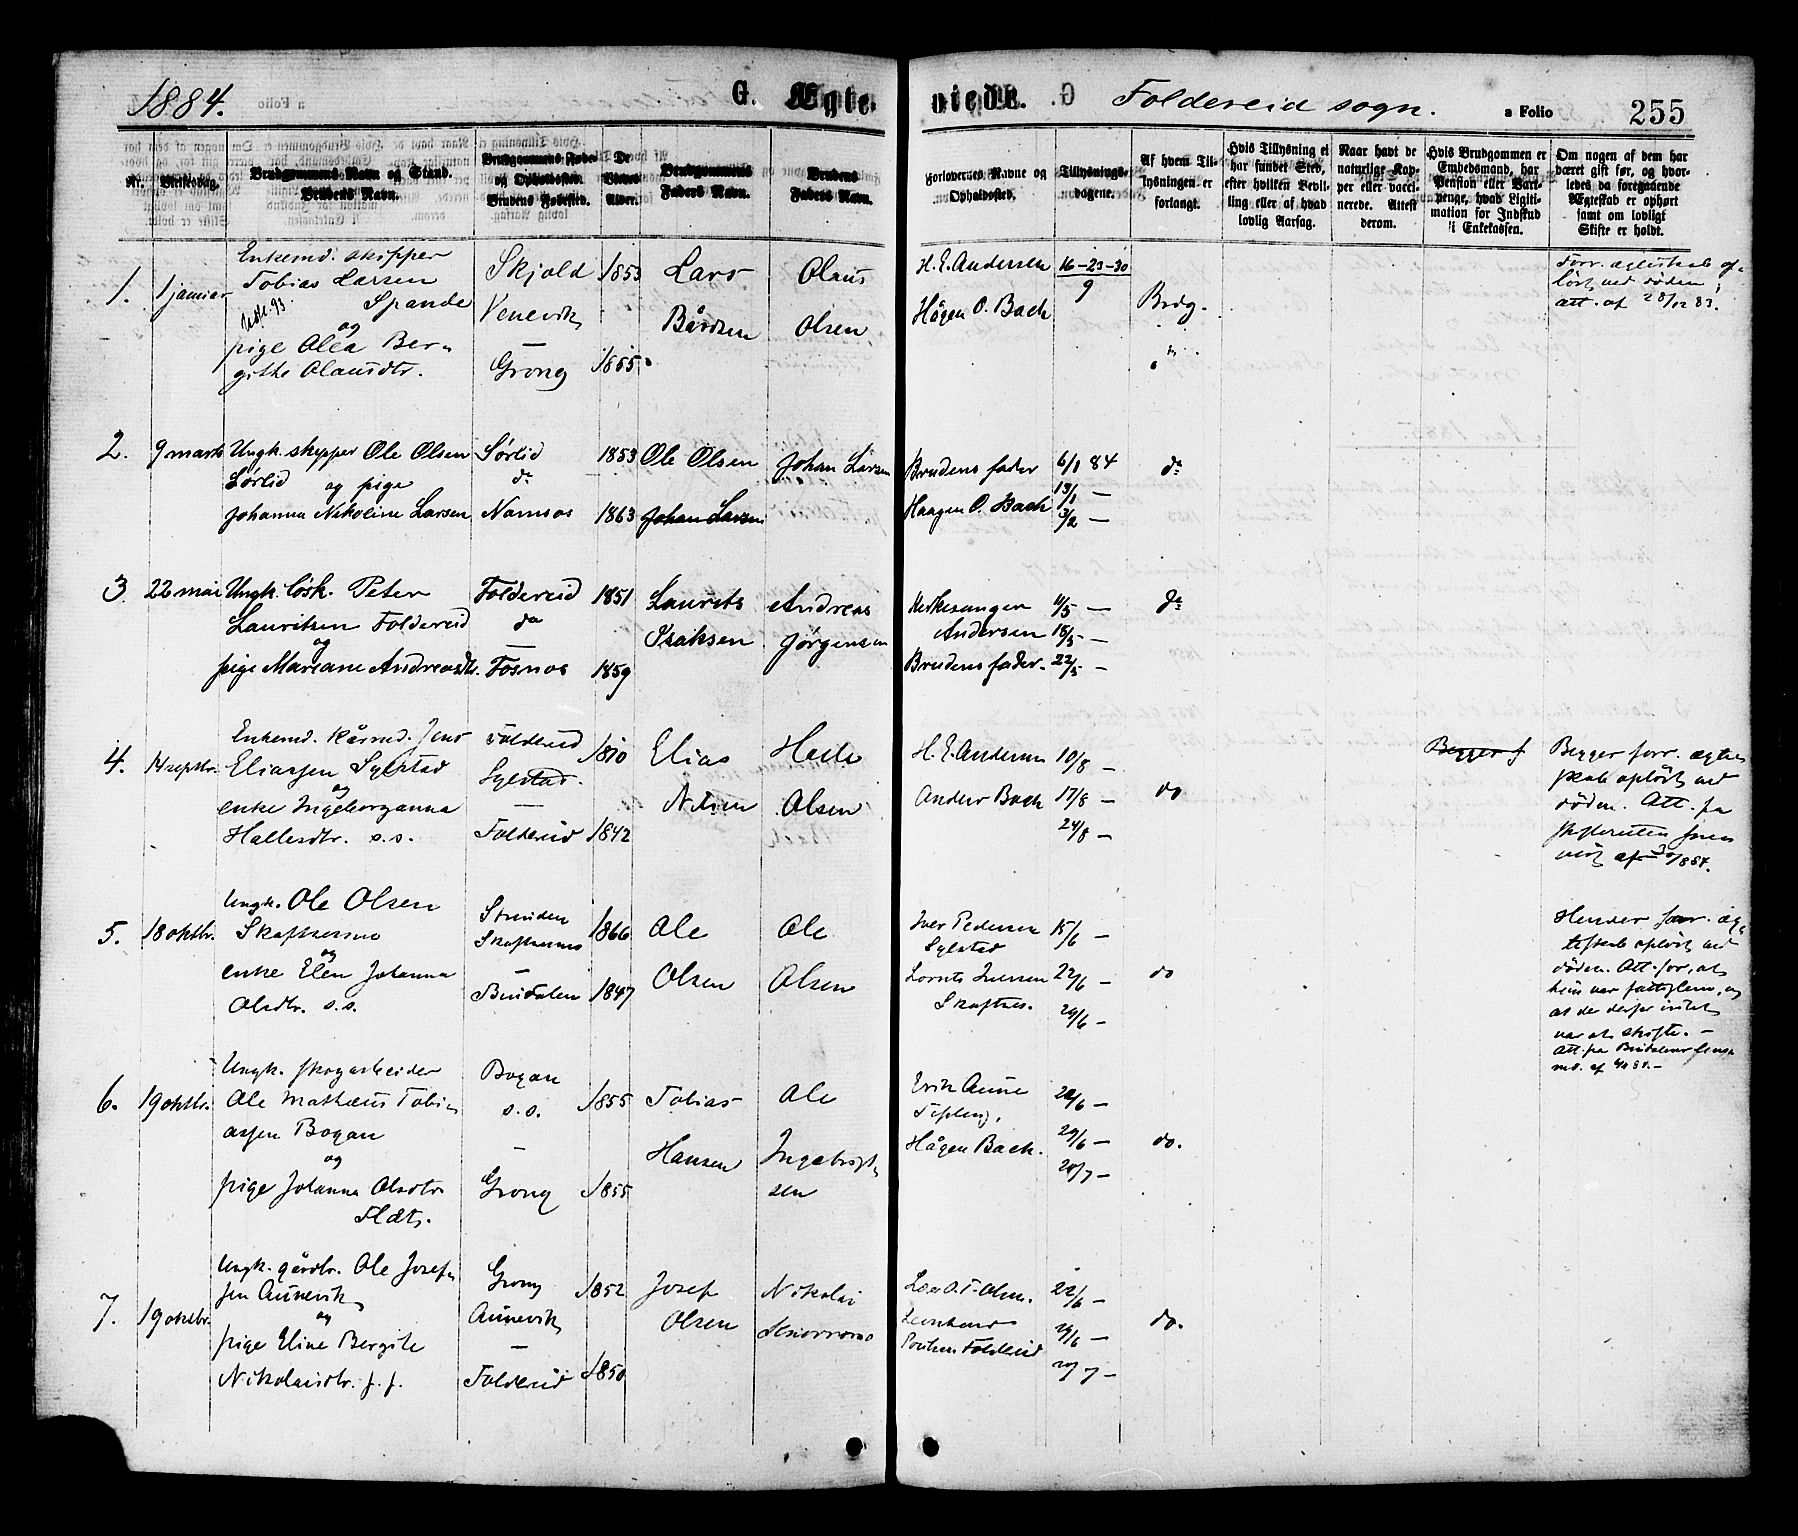 1884.
G. Ægte-
viede. G.
Foldereid sogn.
a Folio
255
Nr.
Vielsesdag.
Brudgommens Navn og Stand.
Brudens Navn.
Brudgommens Føde-
og Opholdssted.
Brudens Fødested.
De
Viedes
Alder.
Brudgommens
Faders Navn.
Brudens
Faders Navn.
Forlovernes Navne og
Opholdssted.
Tillysnings-
dagene.
Af hvem Til-
lysningen er
forlangt.
Hvis Tillysning ei
har fundet Sted,
efter hvilken Bevil-
ling eller af hvad
lovlig Aarsag.
Naar havt de
naturlige Kop-
per eller vacci-
nerede. Attest
derom.
Hvis Brudgommen er
Embedsmand, har
Pension eller Var-
penge, hvad Ligiti-
mation for Indskud
i Enkekassen.
Om nogen af dem har
været gift før, og hvor-
ledes da foregaaende
Ægteskab er ophørt
samt om lovligt
Skifte er holdt.
1.
1 januar
Enkemd. skipper
Tobias Larsen
Spande
og
pige Olea Ber-
githe Olausdtr.
Skjold
Venevik
—
Grong
1853
1855
Lars
Bårdsen
Olaus
Olsen
H. E. Andersen
Hågen O. Bach
16-23-30
9
Brdg.
Forr. ægteskab op-
löst ved döden;
att. af 28/12 83.
2.
9 marts
Ungk. skipper Ole Olsen
Sörlid og pige
Johanna Nikoline Larsen
Sørlid
do
Namsos
1853
1863
Ole Olsen
Johan Larsen
Johan Larsen
Brudens fader
Haagen O. Bach
6/1 84
13/1 —
3/2 —
do
3.
22 mai
Ungk. løsk. Peter
Lauritsen Foldereid
og
pige Mariane Andreasdtr.
Foldereid
do
—
Fosnos
1851
1859
Laurits
Isaksen
Andreas
Jørgensen
Kirkesanger
Andersen
Brudens fader.
11/5 —
18/5 —
22/5 —
do
4.
14 septbr.
Enkemd. kårmd. Jens
Eliassen Sylstad
og
enke Ingeborganna
Hallesdtr. s.s.
Foldereid
Sylstad.
—
Foldereid
1810
1842
Elias
Nilsen
Helle
Olsen
H. E. Andersen
Anders Bach
10/8 —
17/8 —
24/8 —
do
Begges f
Begges forr. ægte-
skab oplöst ved
döden. Att. fra
skifteretten
5.
18 oktbr.
Ungk. Ole Olsen
Skaftnesmo
og
enke Elen Johanna
Olsdtr. s.s.
Skaftnesmo
—
Bindalen
1866
1847
Ole
Olsen
Ole
Olsen
Iver Pedersen
Sylstad
Lornts Iversen
Skaftnes.
15/6 —
22/6 —
29/6 —
do
Hendes forr. æg-
teskab oplöst ved
döden. Att. for, at
hun var fattiglem, og
at der derfor intet
var at skifte. —
Att. fra Bindalens lens
md. af
6.
19 oktbr.
Ungk. skogarbeider
Ole Mathæus Tobi-
assen Bogan
og
pige Johanna Olsdtr.
Flåt.
Bogan
s.s.
—
Grong
1855
1855
Tobias
Hansen
Ole
Ingebrigt-
sen
Erik Aune
Hågen Bach.
22/6 —
29/6 —
20/7 —
do.
7.
19 oktbr.
Ungk. gårdbr. Ole Josef-
sen Aunevik
og
pige Eline Bergite
Nikolaisdtr. f. f.
Grong
Aunevik
—
Foldereid
1852
1850
Josef
Olsen
Nikolai
Olsen.
Foldereid
22/6 —
29/6 —
20/7 —
do.